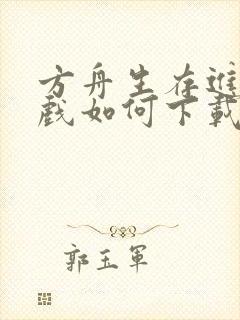 方舟生存進
戲如何下載
郭玉軍